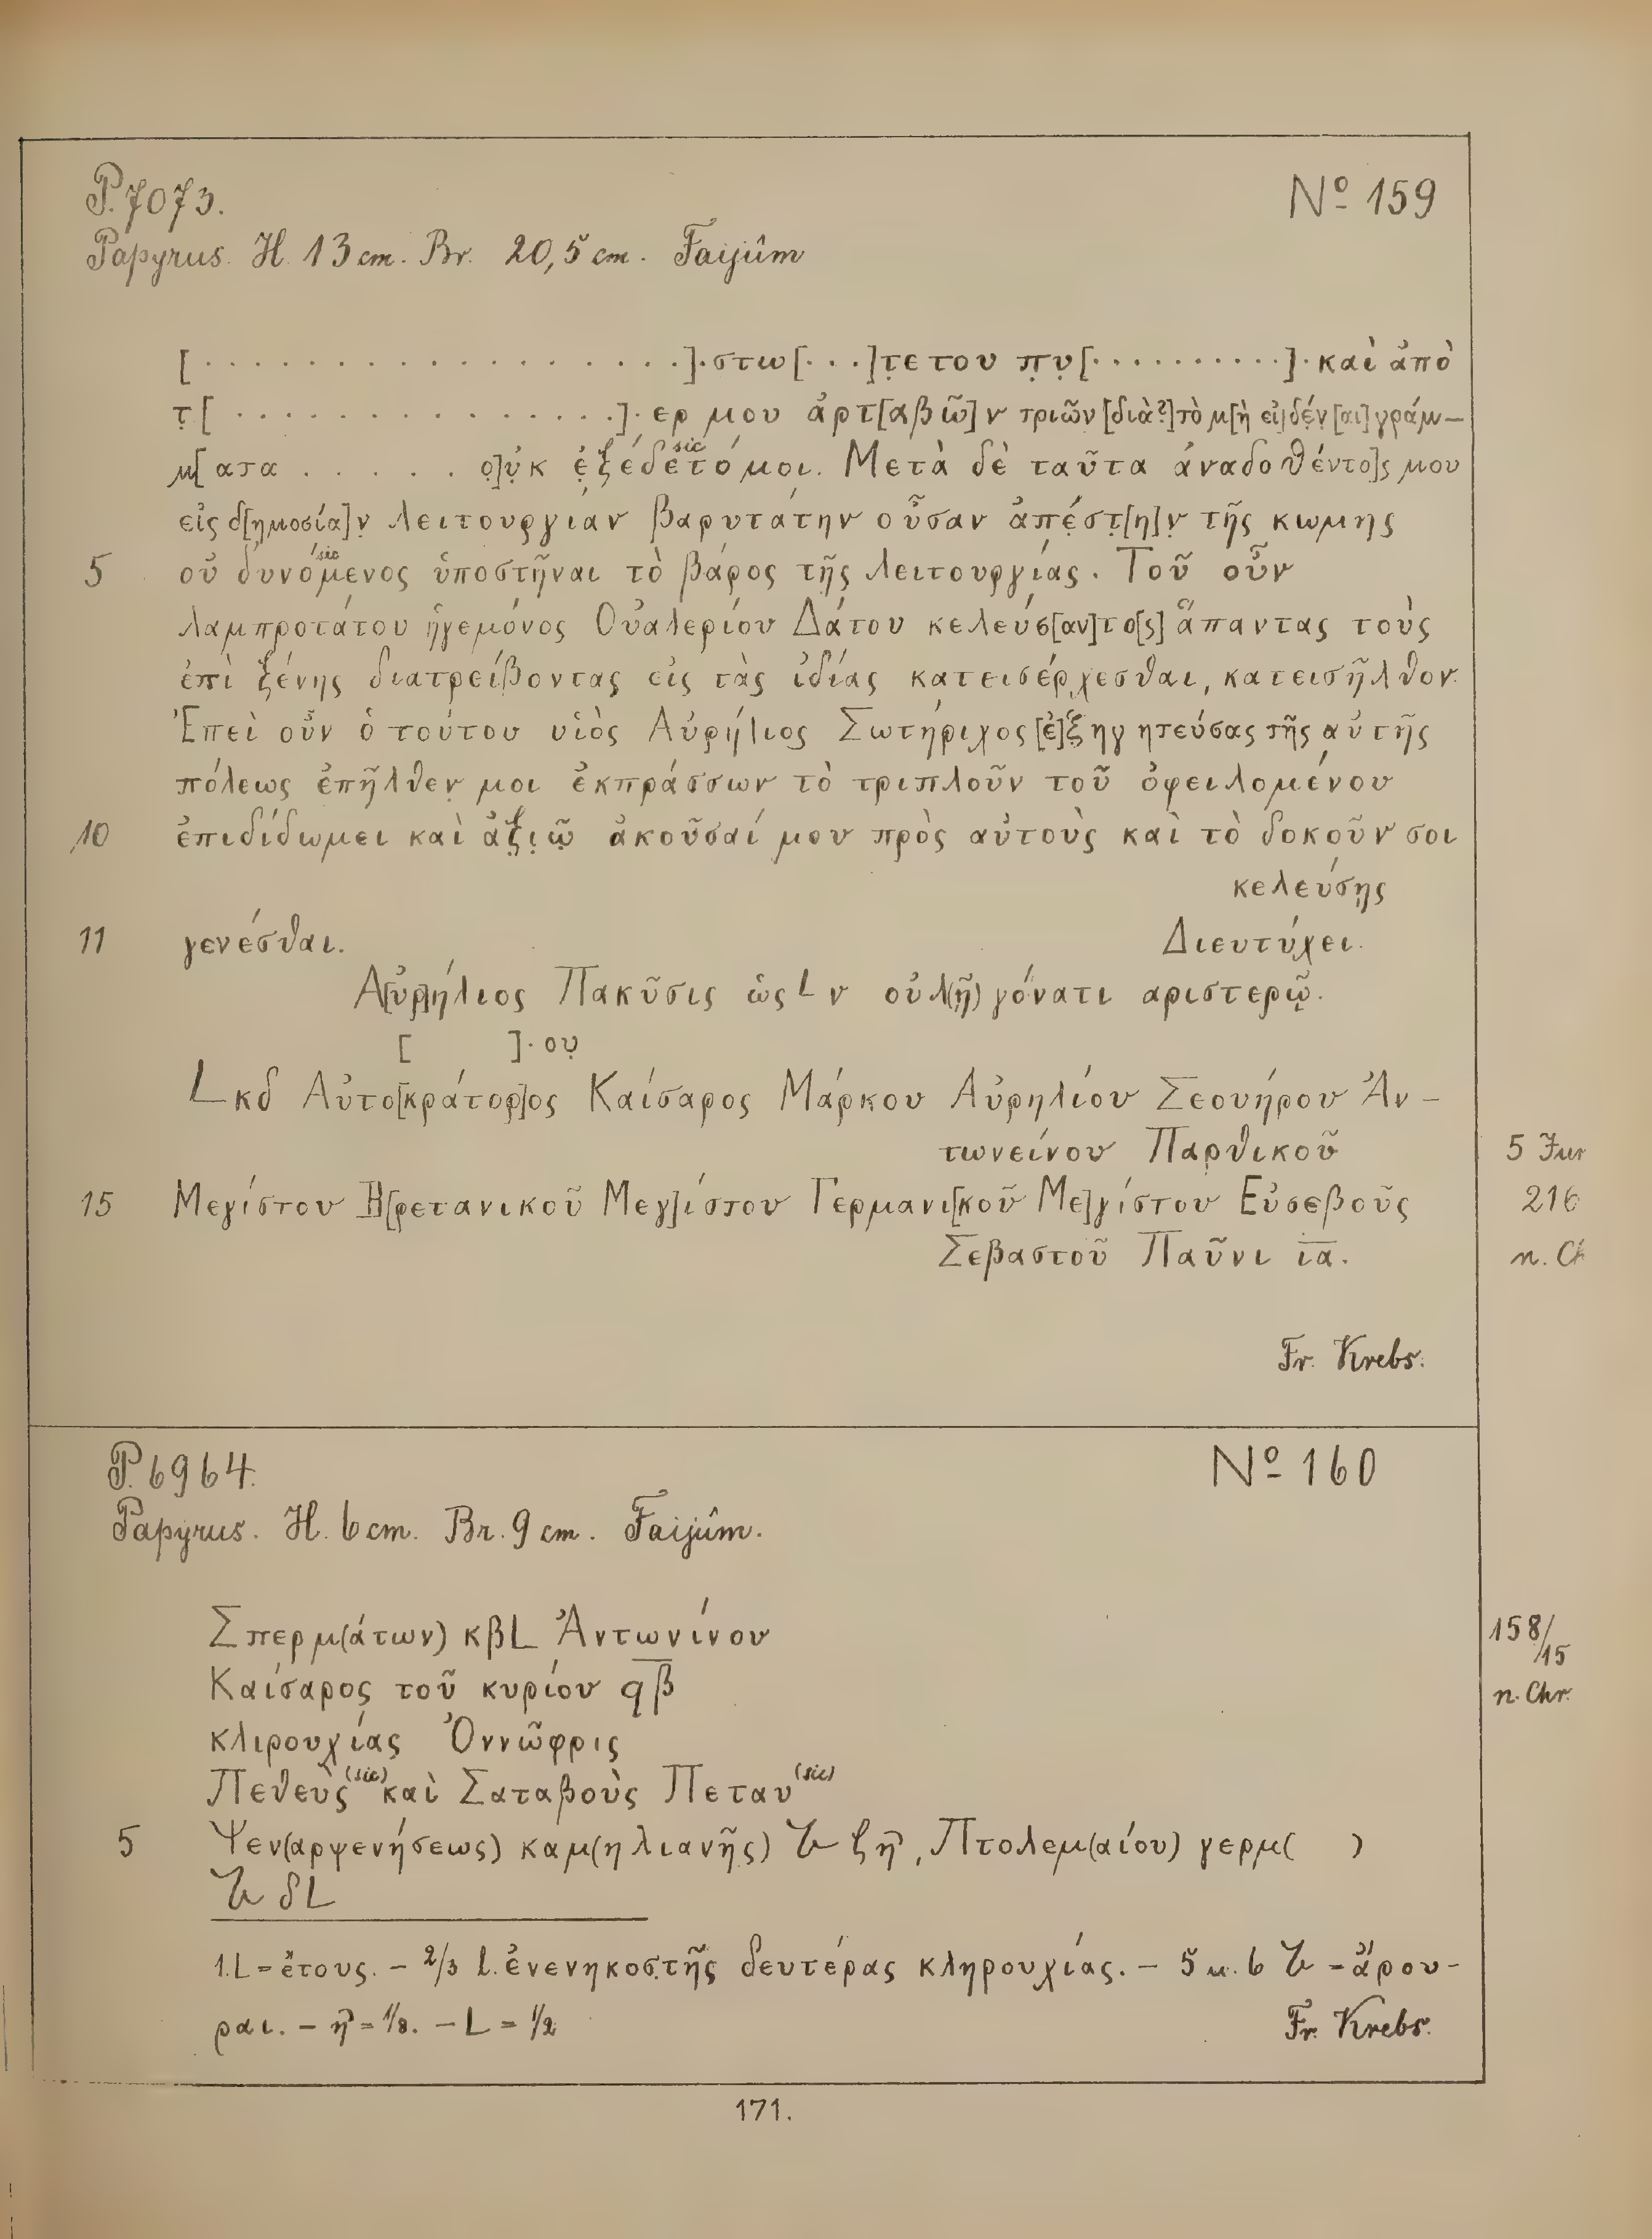 P. 7073.
Nº 159
Papyrus. H. 13 cm. Br. 20,5 cm. Faijûm
[..................].στω[...]τ̣ετου π̣υ̣[..........].καὶ ἀπὸ
τ̣[...............].ερ μου ἀρτ[αβῶ]ν τριῶν [διὰ?] τὸ μ[ὴ εἰ]δέν̣[αι] γράμ–
μ[ατα ..... ο̣]ὐ̣κ ἐ̣ξέδετό (sic) μοι. Μετὰ δὲ ταῦτα ἀναδοθέντο]ς μου
εἰς δ[ημοσία]ν̣ λειτουργίαν βαρυτάτην οὖσαν ἀπέ̣στ̣[η]ν̣ τῆς κώμης
5 οὐ δυνόμενος (sic) ὑποστῆναι τὸ βάρος τῆς λειτουργίας. Τοῦ οὖν
λαμπροτάτου ἡγεμόνος Οὐαλερίου Δάτου κελεύσ[αν]το[ς] ἅπαντας τοὺς
ἐπὶ ξένης διατρείβοντας εἰς τὰς ἰδίας κατεισέρχεσθαι, κατεισῆλθον.
Ἐπεὶ οὖν ὁ τούτου υἱὸς Αὐρήλιος Σωτήριχος [ἐ]ξηγητεύσας τῆς αὐτῆς
πόλεως ἐπῆλθεν̣ μοι ἐκπράσσων τὸ τριπλοῦν τοῦ ὀφειλομένου
10 ἐπιδίδωμει καὶ ἀξ̣ι̣ῶ̣ ἀκοῦσαί μου πρὸς αὐτοὺς καὶ τὸ δοκοῦν σοι
κελεύσῃς
11 γενέσθαι. Διευτύχει.
Α[ὐρ]ήλιος Πακῦσις ὡς L ν οὐλ(ῆ) γόνατι αριστερῷ.
[ ].ου̣
L κδ Αὐτο[κράτορ]ος Καίσαρος Μάρκου Αὐρηλίου Σεουήρου Ἀν–
τωνείνου Παρθικοῦ
5 Jun
15 Μεγίστου Β[ρετανικοῦ Μεγ]ίστου Γερμανι[κοῦ Με]γίστου Εὐσεβοῦς
216
Σεβαστοῦ Παῦνι ια.
n. Ch
Fr. Krebs.
P. 6964.
Nº 160
Papyrus. H. 6 cm. Br. 9 cm. Faijûm.
Σπερμ(άτων) κβL Ἀντωνίνου
158/15
Καίσαρος τοῦ κυρίου ϙβ
n. Chr.
κλιρουχίας Ὀννῶφρις
Πεθεὺς (sic) καὶ Σαταβοὺς Πεταυ (sic)
5 Ψεν(αρψενήσεως) καμ(ηλιανῆς) 𐅵 ζη, Πτολεμ(αίου) γερμ( )
δL
1. L = ἔτους. – 2/3 l. ἐνενηκοστῆς δευτέρας κληρουχίας. – 5 u. 6 = ἄρου-
ραι. – η = 1/8. – L = 1/2
Fr. Krebs.
171.